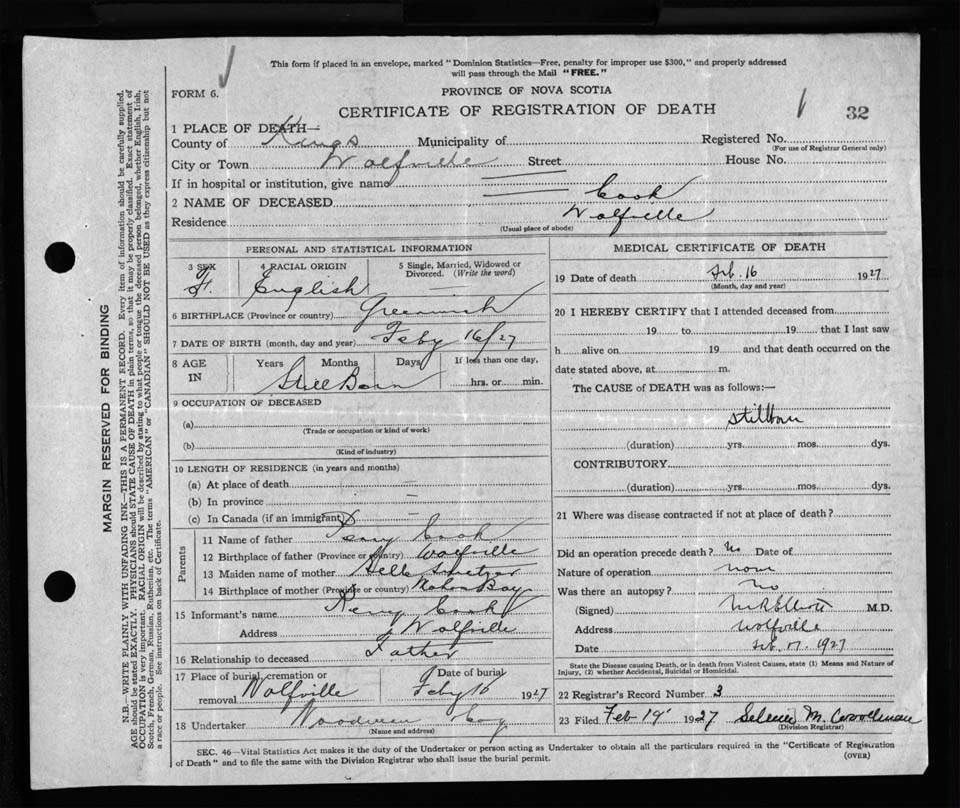 This form if placed in an envelope, marked "Dominion Statistics—Free, penalty for improper use $300," and properly addressed
will pass through the Mail "FREE."
FORM 6.
PROVINCE OF NOVA SCOTIA
CERTIFICATE OF REGISTRATION OF DEATH
32
1 PLACE OF DEATH—
County of Kings Municipality of Registered No.
(For use of Registrar General only)
City or Town Wolfville Street House No.
If in hospital or institution, give name
2 NAME OF DECEASED Cook
Residence Wolfville
(Usual place of abode)
PERSONAL AND STATISTICAL INFORMATION
3 SEX 4 RACIAL ORIGIN 5 Single, Married, Widowed or
Divorced. (Write the word)
F. English
6 BIRTHPLACE (Province or country) Greenwich
7 DATE OF BIRTH (month, day and year) Feby 16/27
8 AGE Years Months Days If less than one day,
IN Still Born hrs. or min.
9 OCCUPATION OF DECEASED
(a)
(Trade or occupation or kind of work)
(b)
(Kind of industry)
10 LENGTH OF RESIDENCE (in years and months)
(a) At place of death —
(b) In province —
(c) In Canada (if an immigrant) —
Parents
11 Name of father Perry Cook
12 Birthplace of father (Province or country) Wolfville
13 Maiden name of mother
14 Birthplace of mother (Province or country) Mahone Bay
15 Informant's name Perry Cook
Address Wolfville
16 Relationship to deceased Father
17 Place of burial, cremation or Date of burial
removal Wolfville Feby 16 1927
18 Undertaker Woodman
(Name and address)
MEDICAL CERTIFICATE OF DEATH
19 Date of death Feb. 16 1927
(Month, day and year)
20 I HEREBY CERTIFY that I attended deceased from
19 to 19 that I last saw
h alive on 19 and that death occurred on the
date stated above, at m.
The CAUSE of DEATH was as follows:—
Stillborn
(duration) yrs. mos. dys.
CONTRIBUTORY
(duration) yrs. mos. dys.
21 Where was disease contracted if not at place of death?
Did an operation precede death? No Date of
Nature of operation none
Was there an autopsy? No
(Signed) M R Elliott M.D.
Address Wolfville
Date Feb. 17. 1927
State the Disease causing Death, or in death from Violent Causes, state (1) Means and Nature of
Injury, (2) whether Accidental, Suicidal or Homicidal.
22 Registrar's Record Number 3
23 Filed Feb 19' 1927 M.
(Division Registrar)
SEC. 46—Vital Statistics Act makes it the duty of the Undertaker or person acting as Undertaker to obtain all the particulars required in the "Certificate of Registration
of Death" and to file the same with the Division Registrar who shall issue the burial permit.
(OVER)
MARGIN RESERVED FOR BINDING
N.B.—WRITE PLAINLY WITH UNFADING INK—THIS IS A PERMANENT RECORD. Every item of information should be carefully supplied.
AGE should be stated EXACTLY. PHYSICIANS should STATE CAUSE OF DEATH in plain terms, so that it may be properly classified. Exact statement of
OCCUPATION is very important. RACIAL ORIGIN will be described by stating to what people or tongue the deceased person belonged, whether English, Irish,
Scotch, French, German, Russian, Ruthenian, etc. The terms "AMERICAN" or "CANADIAN" SHOULD NOT BE USED as they express citizenship but not
a race or people. See instructions on back of Certificate.